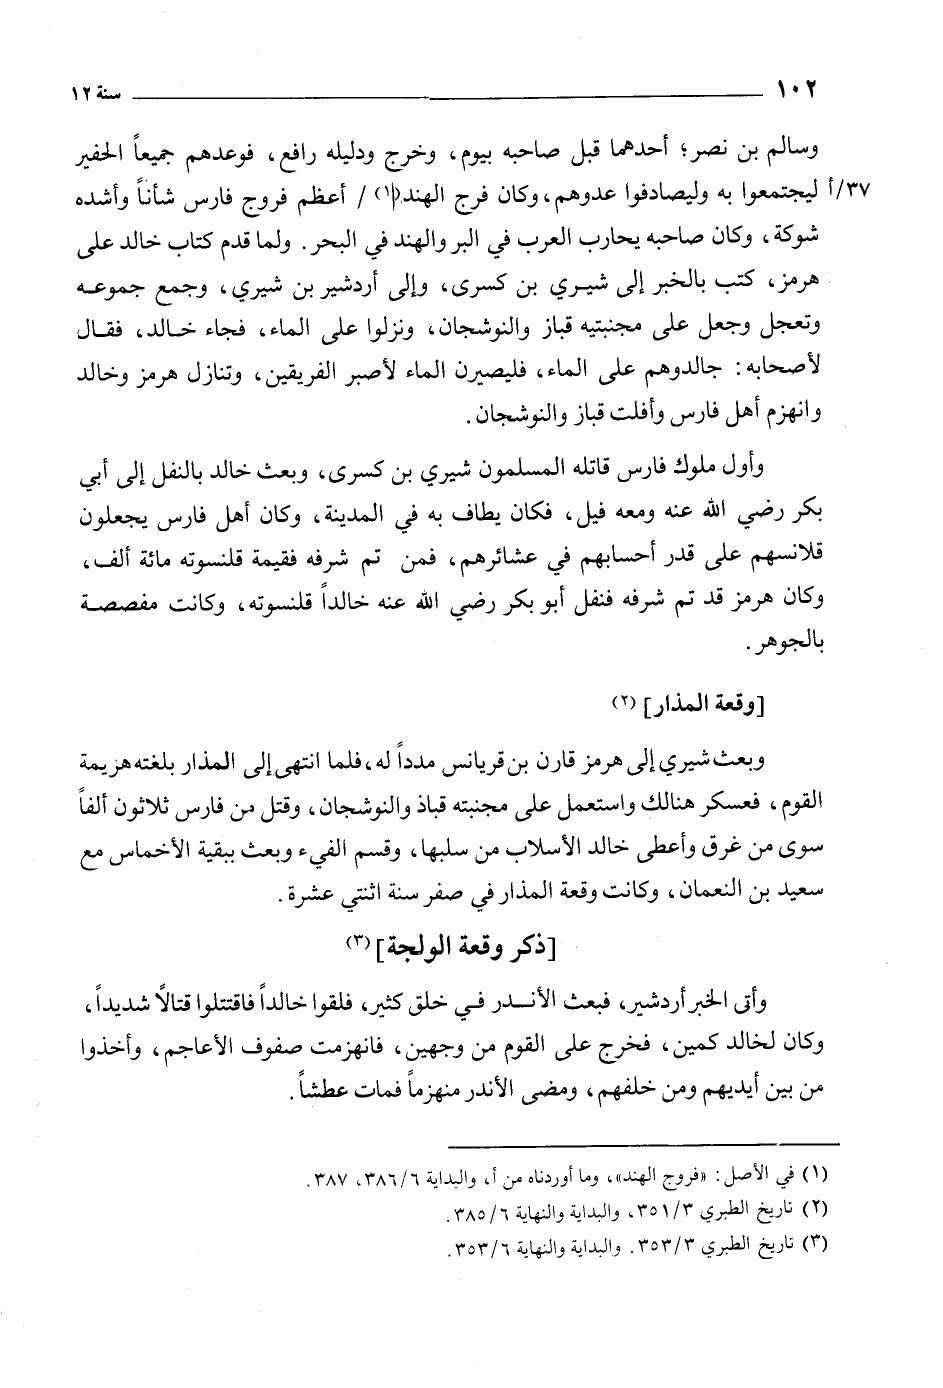 ١٠٢ سنة ١٢
وسالم بن نصر؛ أحدهما قبل صاحبه بيوم، وخرج ودليله رافع، فوعدهم جميعاً الحفير
٣٧/أ ليجتمعوا به وليصادفوا عدوهم، وكان فرج الهند(١) / أعظم فروج فارس شأناً وأشده
شوكة، وكان صاحبه يحارب العرب في البر والهند في البحر. ولما قدم كتاب خالد على
هرمز، كتب بالخبر إلى شيري بن كسرى، وإلى أردشير بن شيري، وجمع جموعه
وتعجل وجعل على مجنبتيه قباز والنوشجان، ونزلوا على الماء، فجاء خالد، فقال
لأصحابه: جالدوهم على الماء، فليصيرن الماء لأصبر الفريقين، وتنازل هرمز وخالد
وانهزم أهل فارس وأفلت قباز والنوشجان.
وأول ملوك فارس قاتله المسلمون شيري بن كسرى، وبعث خالد بالنفل إلى أبي
بكر رضي الله عنه ومعه فيل، فكان يطاف به في المدينة، وكان أهل فارس يجعلون
قلانسهم على قدر أحسابهم في عشائرهم، فمن تم شرفه فقيمة قلنسوته مائة ألف،
وكان هرمز قد تم شرفه فنفل أبو بكر رضي الله عنه خالداً قلنسوته، وكانت مفصصة
بالجوهر.
[وقعة المذار] (٢)
وبعث شيري إلى هرمز قارن بن قريانس مدداً له، فلما انتهى إلى المذار بلغته هزيمة
القوم، فعسكر هنالك واستعمل على مجنبته قباذ والنوشجان، وقتل من فارس ثلاثون ألفاً
سوى من غرق وأعطى خالد الأسلاب من سلبها، وقسم الفيء وبعث ببقية الأخماس مع
سعيد بن النعمان، وكانت وقعة المذار في صفر سنة اثنتي عشرة.
[ذكر وقعة الولجة] (٣)
وأتى الخبر أردشير، فبعث الأندر في خلق كثير، فلقوا خالداً فاقتتلوا قتالاً شديداً،
وكان لخالد كمين، فخرج على القوم من وجهين، فانهزمت صفوف الأعاجم، وأخذوا
من بين أيديهم ومن خلفهم، ومضى الأندر منهزماً فمات عطشاً.
(١) في الأصل: «فروج الهند»، وما أوردناه من أ، والبداية ٣٨٦/٦، ٣٨٧.
(٢) تاريخ الطبري ٣٥١/٣، والبداية والنهاية ٣٨٥/٦.
(٣) تاريخ الطبري ٣٥٣/٣. والبداية والنهاية ٣٥٣/٦.